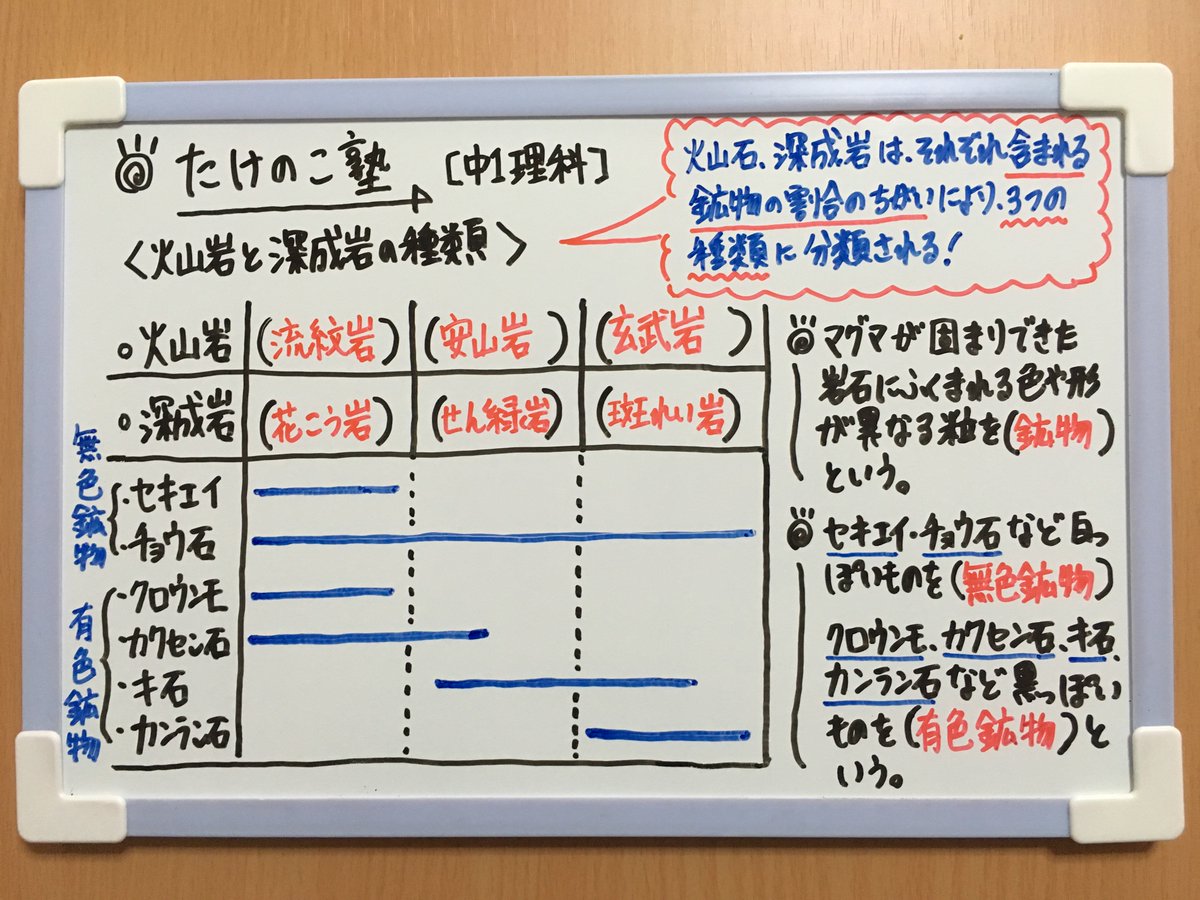 たけのこ塾 [中1理科]
<火山岩と深成岩の種類>
火山石、深成岩は、それぞれ含まれる
鉱物の割合のちがいにより、3つの
種類に分類される!
火山岩 (流紋岩) (安山岩) (玄武岩)
深成岩 (花こう岩) (せん緑岩) (斑れい岩)
無色鉱物
・セキエイ
・チョウ石
有色鉱物
・クロウンモ
・カクセン石
・キ石
・カンラン石
マグマが固まりできた
岩石にふくまれる色や形
が異なる粒を(鉱物)
という。
セキエイ・チョウ石など白っ
ぽいものを(無色鉱物)
クロウンモ、カクセン石、キ石、
カンラン石など黒っぽい
ものを(有色鉱物)と
いう。